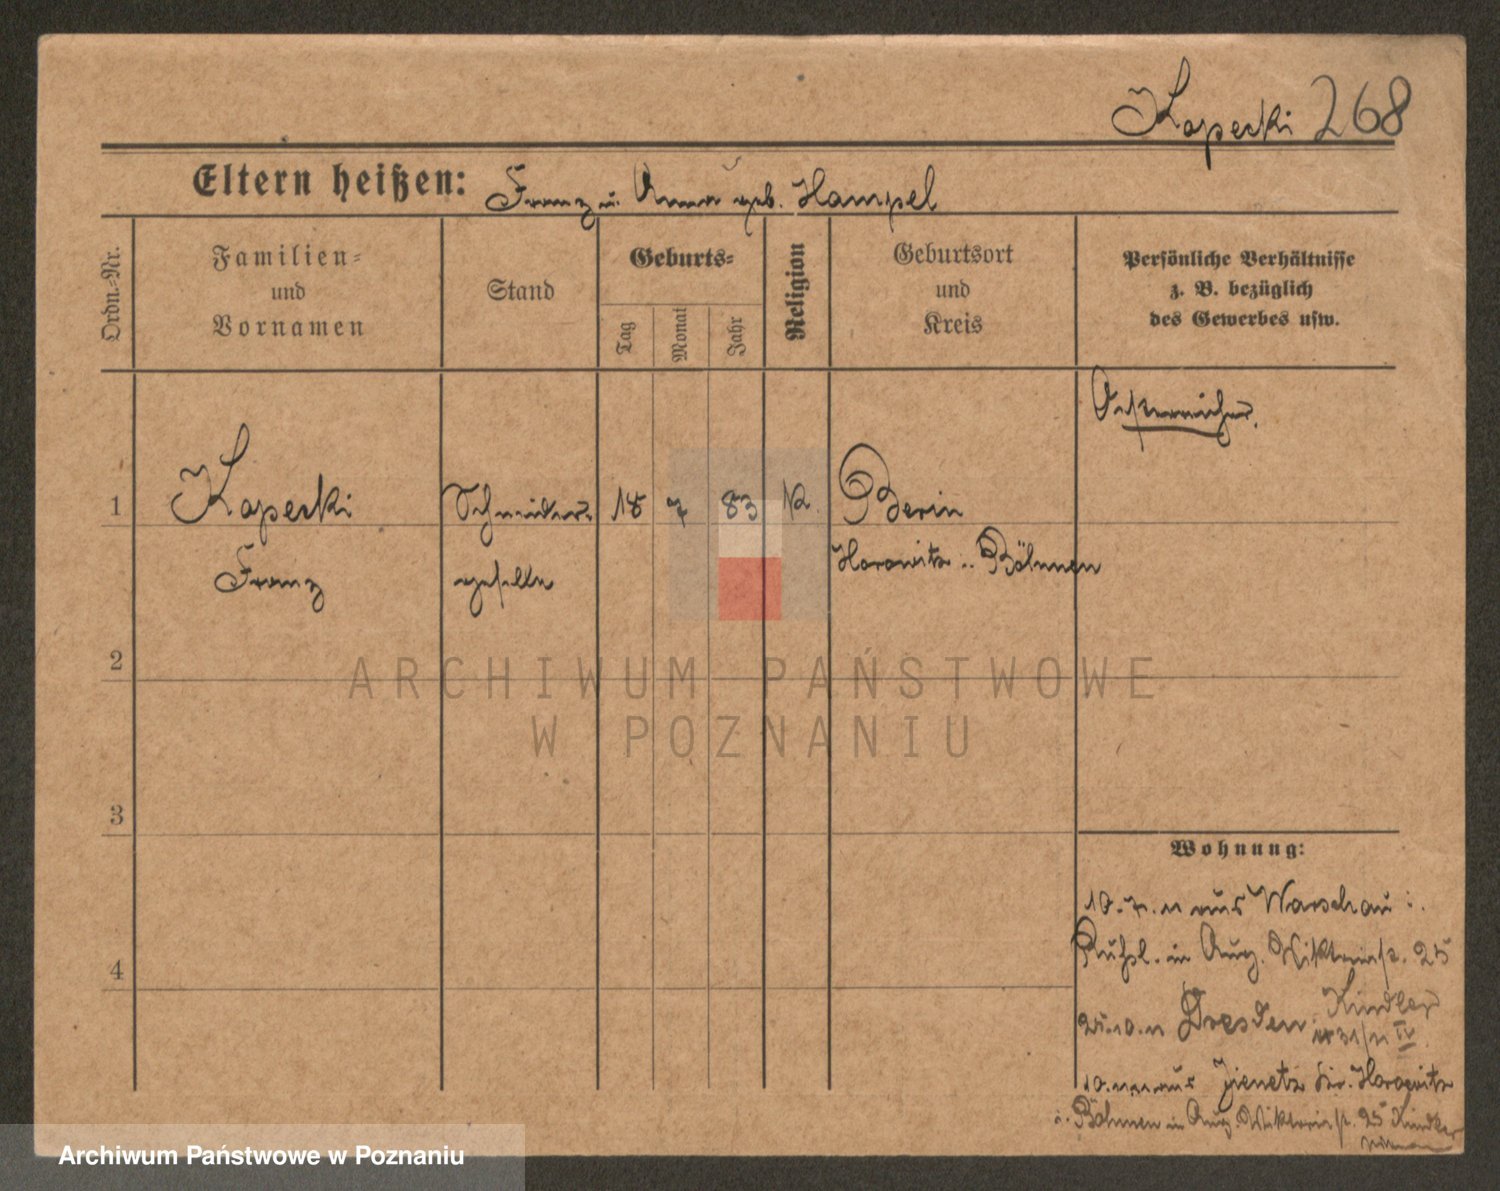 Kopecki 268
Eltern heißen: Franz u. Anna geb. Hampel
Ordn.-Nr.
Familien-
und
Vornamen
Stand
Geburts-
Tag
Monat
Jahr
Religion
Geburtsort
und
Kreis
Persönliche Verhältnisse
z. B. bezüglich
des Gewerbes usw.
Österreicher.
1
Kopecki
Franz
Schneider-
geselle
18
7
83
K.
Berin
Horowitz i. Böhmen
2
3
4
ARCHIWUM PAŃSTWOWE
W POZNANIU
Wohnung:
10.7.11 aus Warschau i.
Rußl. in Aug. Viktoriastr. 25
25.10.11 Dresden
10.11.11 aus Horowitz
i. Böhmen in Aug. Viktoriastr. 25
Archiwum Państwowe w Poznaniu